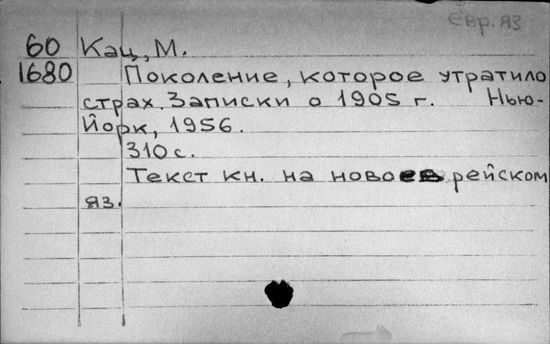 Евр. яз
60 Кац, М.
1680 Поколение, которое утратило
страх. Записки о 1905 г. Нью-
Йорк, 1956.
310 с.
Текст кн. на новоеврейском
яз.